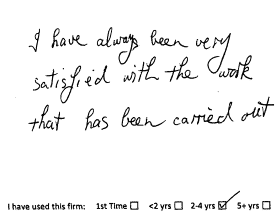 I have always been very
satisfied with the work
that has been carried out
I have used this firm: 1st Time ☐ <2 yrs ☐ 2-4 yrs ☑ 5+ yrs ☐